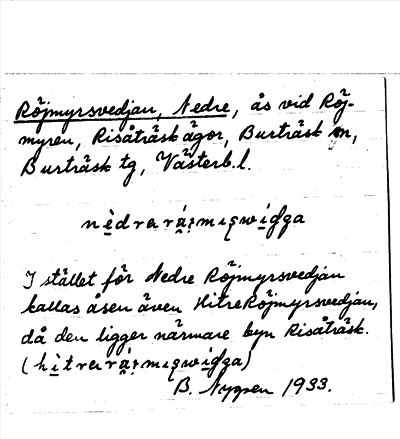 Röjmyrsvedjan, Nedre, ås vid Röj-
myren, Risåträsk ägor, Burträsk sn,
Burträsk tg, Västerb.l.
I stället för Nedre Röjmyrsvedjan
kallas åsen även HitreRöjmyrsvedjan,
då den ligger närmare byn Risåträsk.
B. 1933.